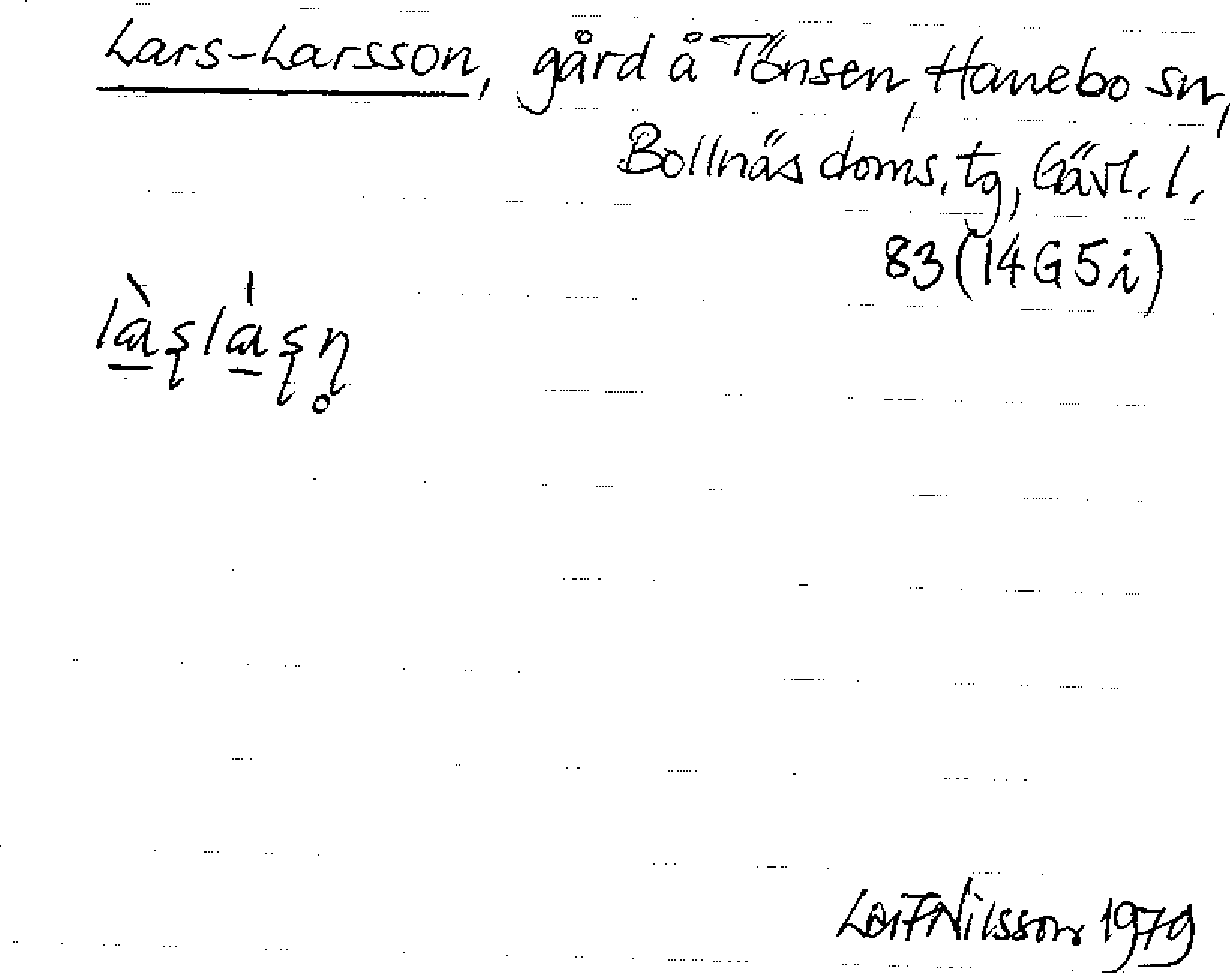 Lars-Larsson, gård å Tönsen, Hanebo sn,
Bollnäs doms. tg, Gävl. l.
83 (14 G 5 i)
Leif Nilsson 1979